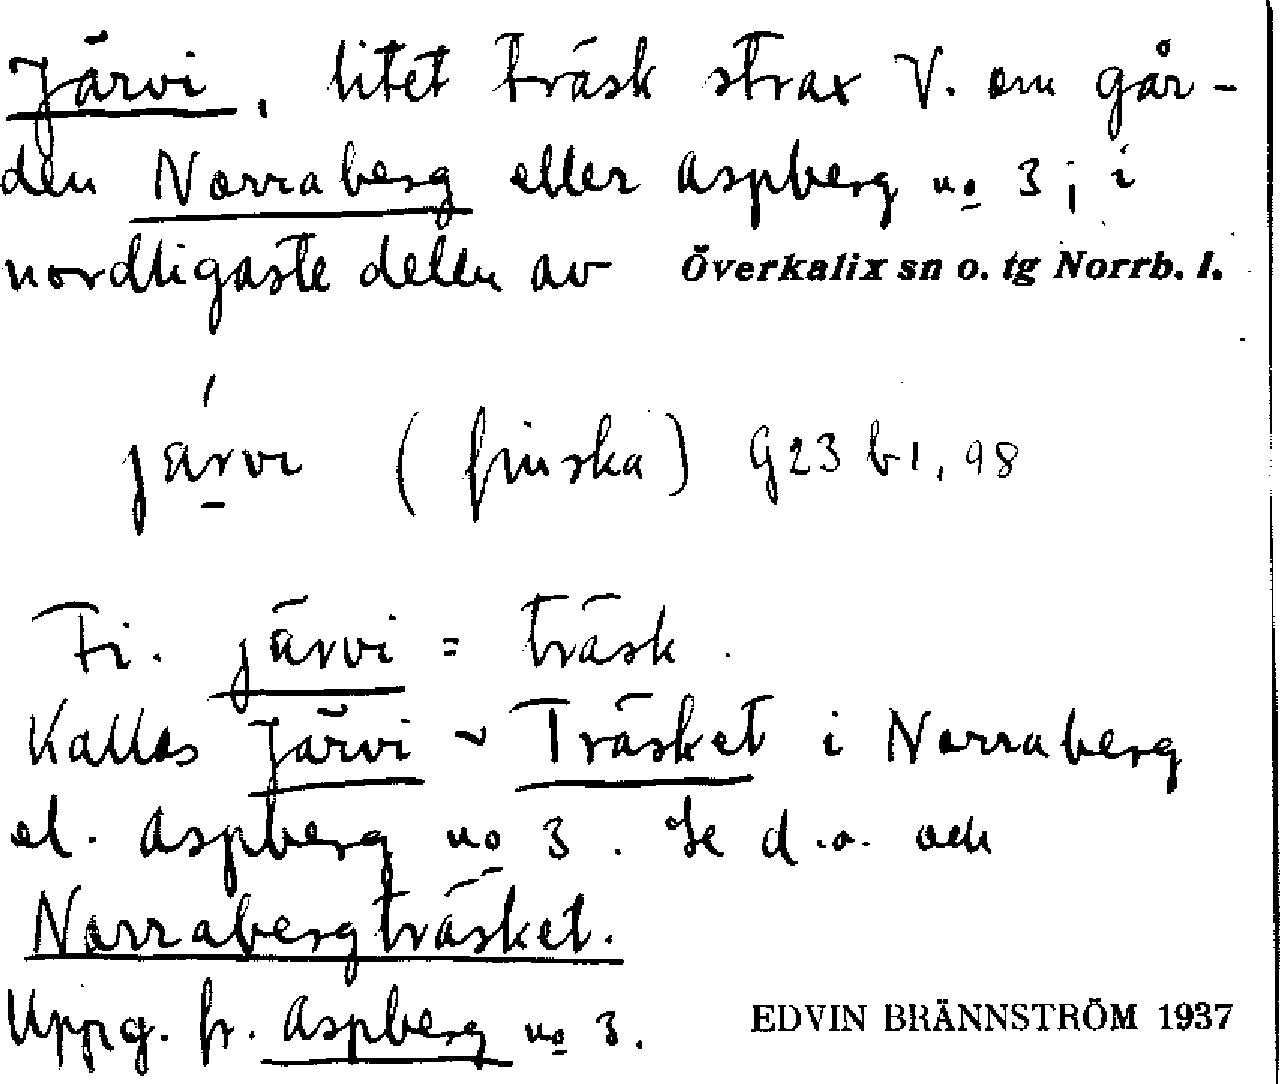 Järvi, litet träsk strax V. om går-
den Norraberg eller Aspberg no 3; i
nordligaste delen av Överkalix sn o. tg Norrb. l.
järvi (finska) G23 b1, 98
Fi. järvi = träsk.
Kallas Järvi ~ Träsket i Norraberg
el. Aspberg no 3. Se d.o. och
Norrabergträsket.
Uppg. fr. Aspberg no 3.
EDVIN BRÄNNSTRÖM 1937